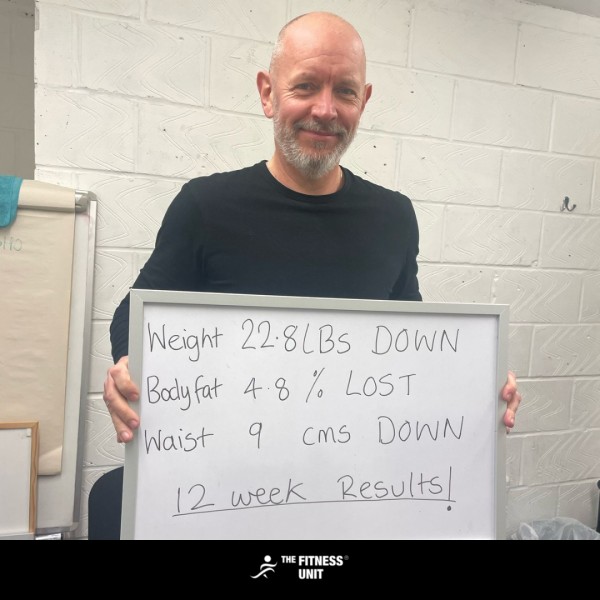 Weight 22.8LBs DOWN
Bodyfat 4.8 % LOST
Waist 9 cms DOWN
12 week Results!
THE FITNESS®
UNIT